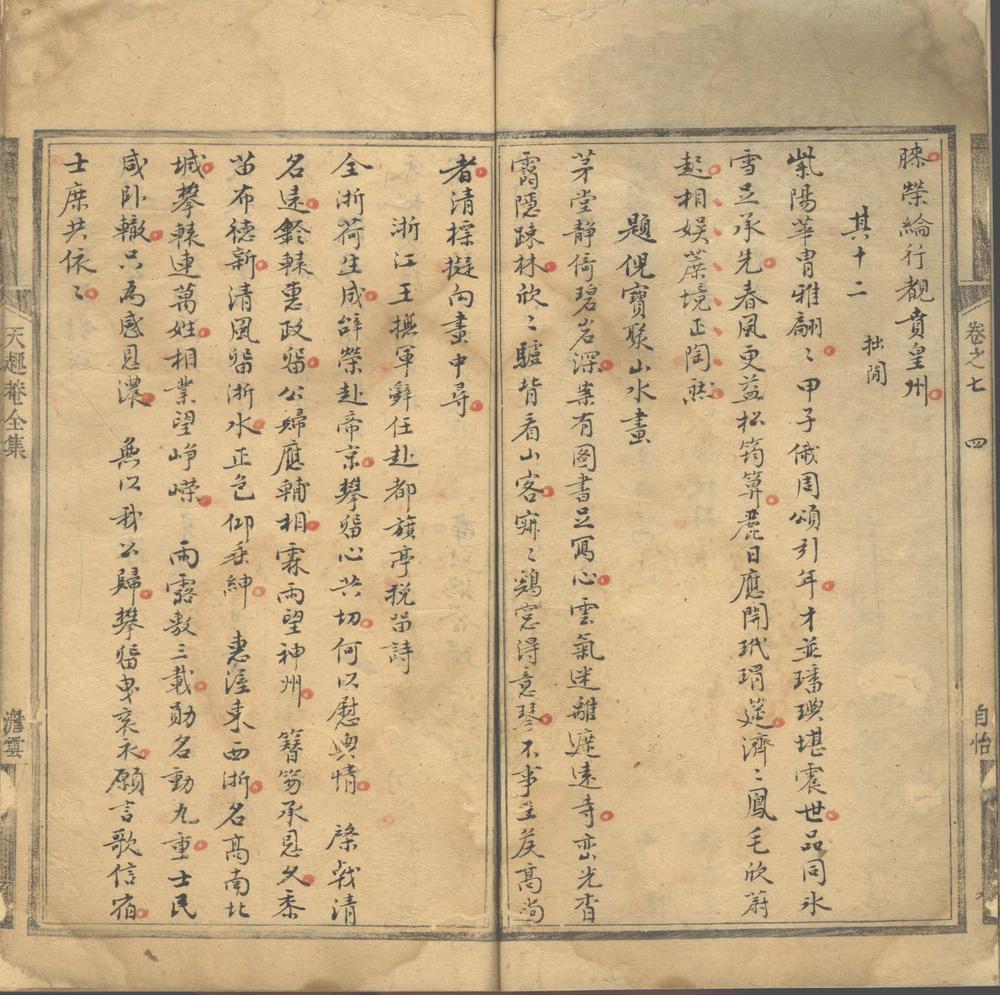 卷之七
四
自怡
膝榮綸行覩賁皇州
其十二
拙閒
紫陽華胄雅翩〻甲子俄周頌引年才並璠璵堪震世品同氷
雪足承先春風更益松筠算麗日應開玳瑁筵濟〻鳳毛欣蔚
起相娛蔗境正陶然
題倪寶聚山水畫
茅堂靜倚碧岩深案有圖書足寫心雲氣迷離遮遠寺峦光杳
靄隱疎林欣〻驢背看山客寂〻鷄窓得意琴不事王侯高尚
者清標擬向畫中尋
浙江王撫軍辭任赴都旗亭税留詩
全浙荷生成辭榮赴帝京攀留心共切何以慰輿情 棨戟清
名遠龄轅惠政留公歸應輔相霖雨望神州 簪笏承恩久黍
苗布德新清風留浙水正色仰垂紳 惠渥東西浙名高南北
城攀轅連萬姓相業望崢嶸 雨露敷三載勛名動九重士民
咸卧轍只為感恩濃 無以我公歸攀留曳衮衣願言歌信宿
士庶共依〻
天趣菴全集
澹雲